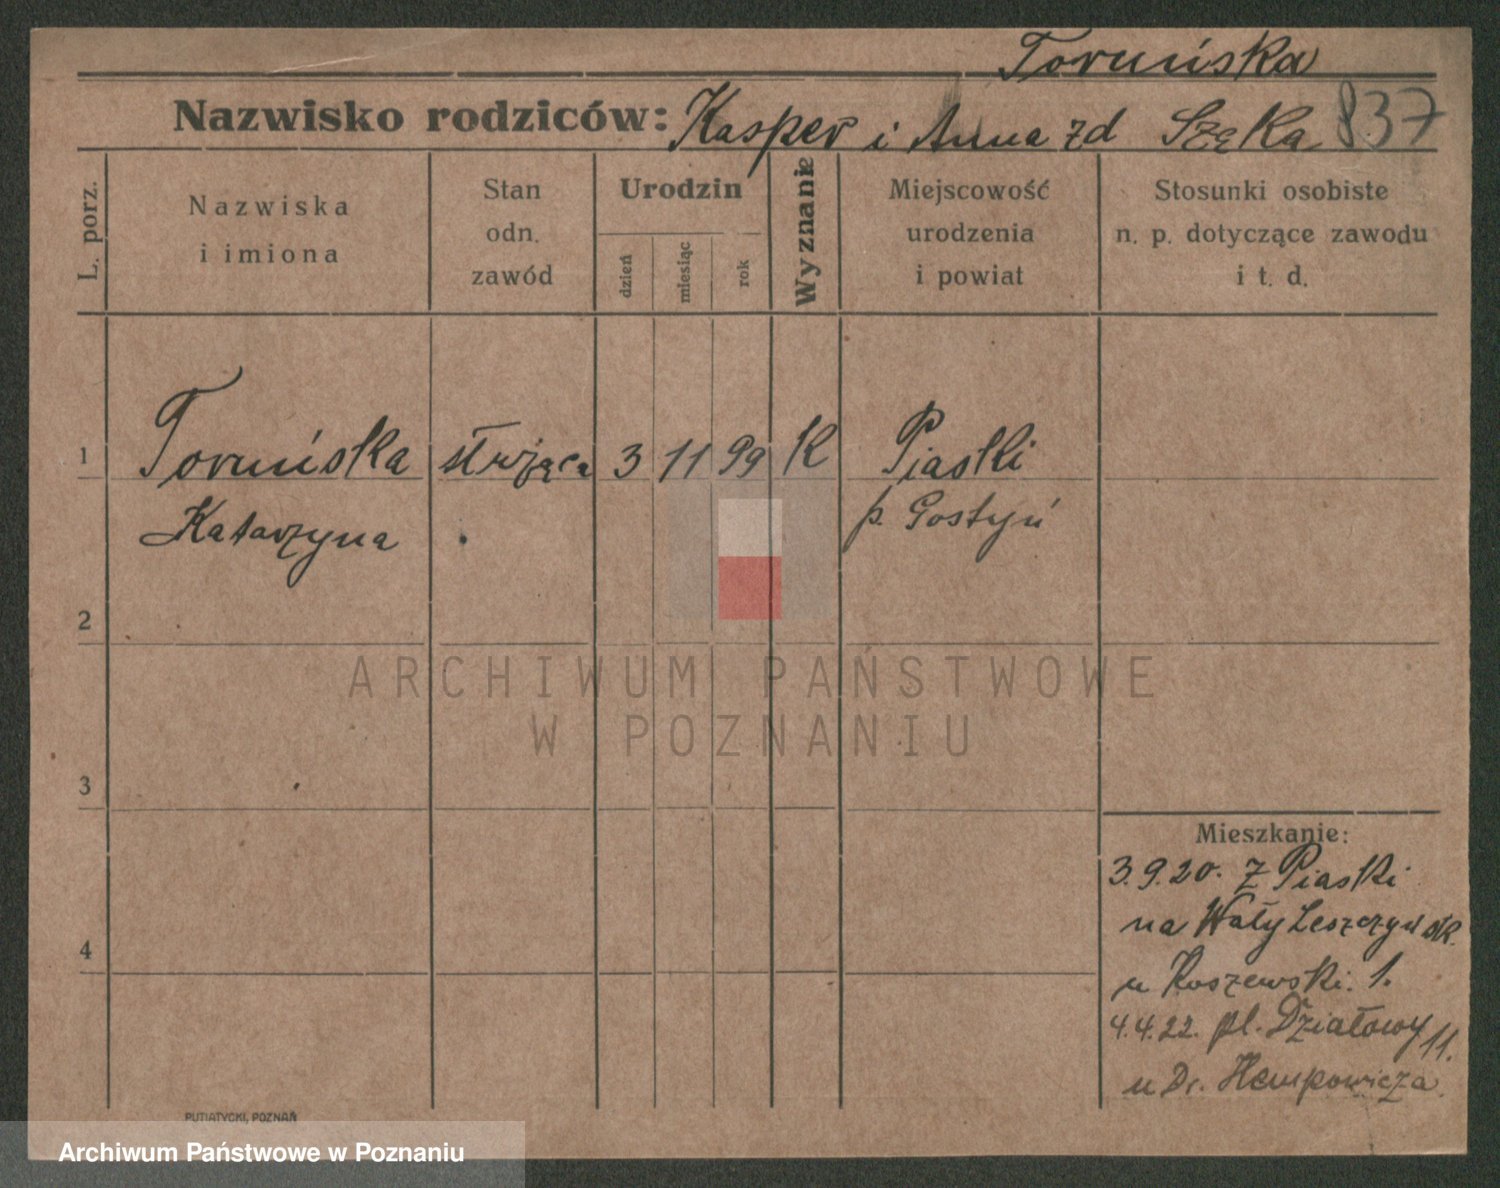 Toruńska
Nazwisko rodziców: Kasper i Anna zd Szęka 837
L. porz.
Nazwiska
i imiona
Stan
odn.
zawód
Urodzin
dzień
miesiąc
rok
Wyznanie
Miejscowość
urodzenia
i powiat
Stosunki osobiste
n. p. dotyczące zawodu
i t. d.
1 Toruńska służąca 3 11 99 K Piaski
Katarzyna p. Gostyń
2
ARCHIWUM PAŃSTWOWE
W POZNANIU
3
Mieszkanie:
3.9.20. z Piaski
na Wały Leszczyńsk.
4
u Koszewski. 1.
4.4.22. pl. Działowy 11.
u Dr. Hempowicza.
PUTIATYCKI, POZNAŃ
Archiwum Państwowe w Poznaniu